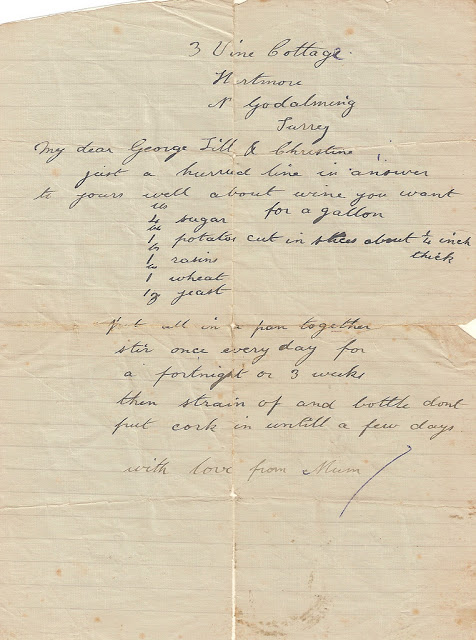 3 Vine Cottage
Hurtmore
N Godalming
Surrey
My dear George Jill & Christine
just a hurried line in answer
to yours well about wine you want
for a gallon
lbs
4 sugar
lb
1 potatoe cut in slices about 1/4 inch
thick
lb
1 rasins
lb
1 wheat
1 oz yeast
put all in a pan together
stir once every day for
a fortnight or 3 weeks
then strain of and bottle dont
put cork in untill a few days
with love from Mum